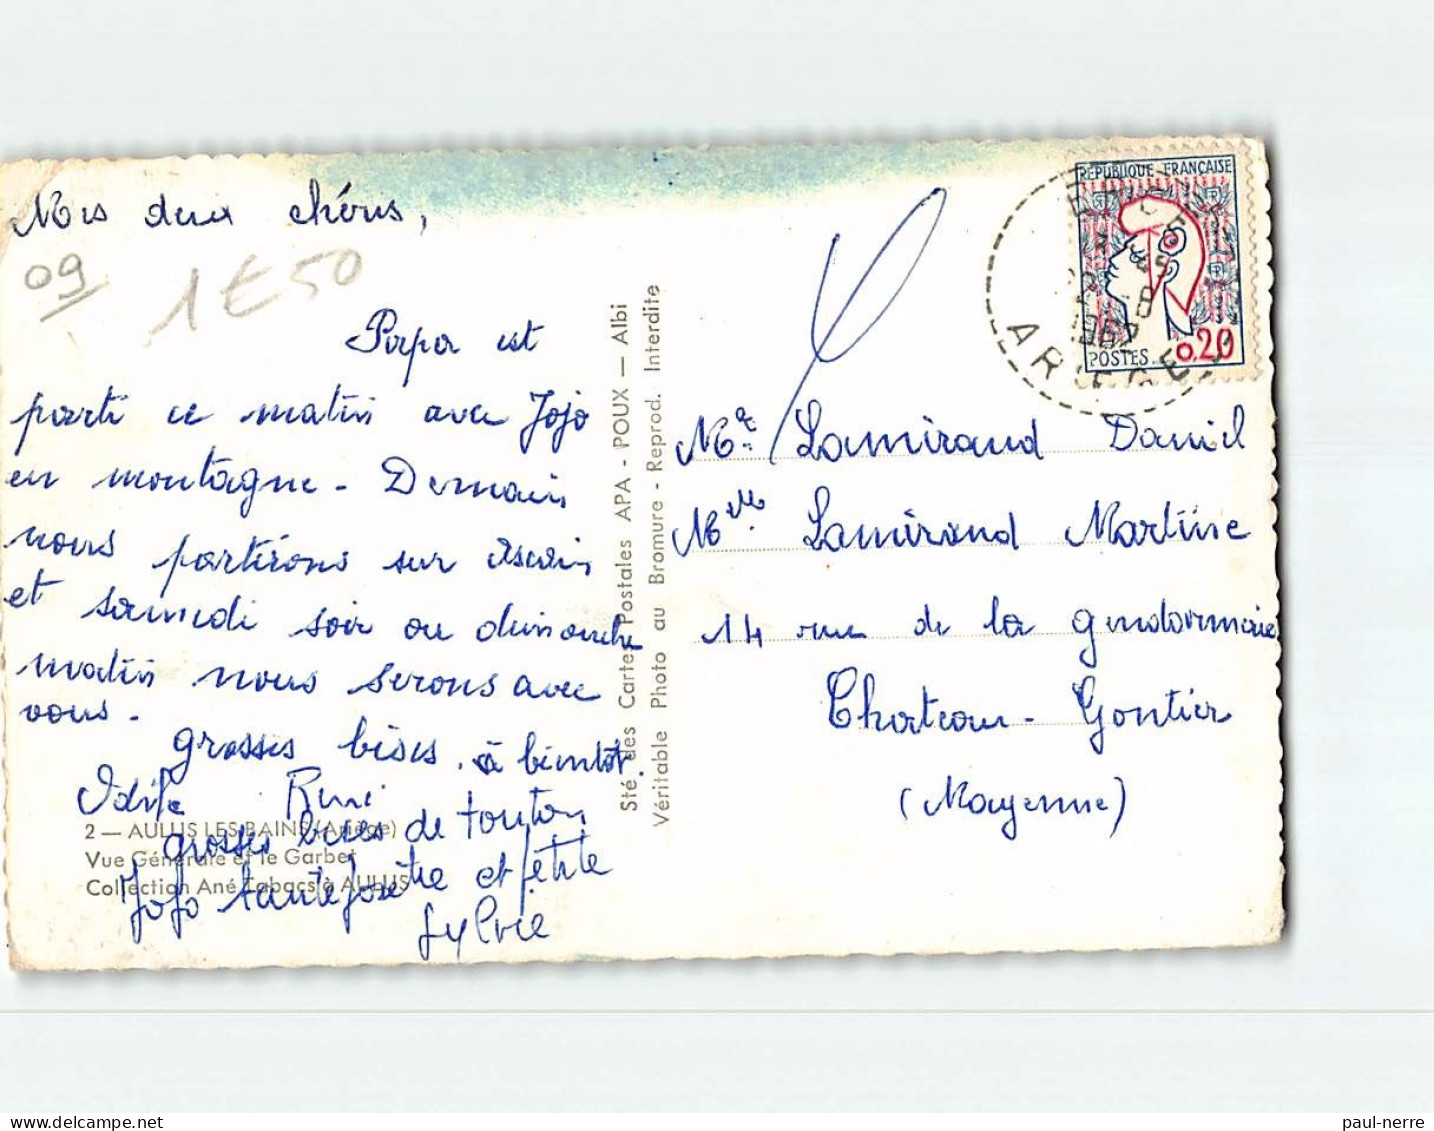 Mes deux chéris,
09
1€50
Papa est
parti ce matin avec Jojo
en montagne - Demain
nous partirons sur Ascain
et samedi soir ou dimanche
matin nous serons avec
vous.
grosses bises. à bientôt.
René
grosses bises de tonton
Jojo tante Josette et petite
Sylvie
2 — AULUS LES BAINS (Ariège)
Vue Générale et le Garbet
Collection Ané Tabacs à AULUS
Sté des Cartes Postales APA - POUX — Albi
Véritable Photo au Bromure - Reprod. Interdite
RÉPUBLIQUE FRANÇAISE
POSTES 0,20
ARIEGE
Mr Lamiraud Daniel
Mlle Lamiraud Martine
14 rue de la gendarmerie
Chateau-Gontier
(Mayenne)
paul-nerre